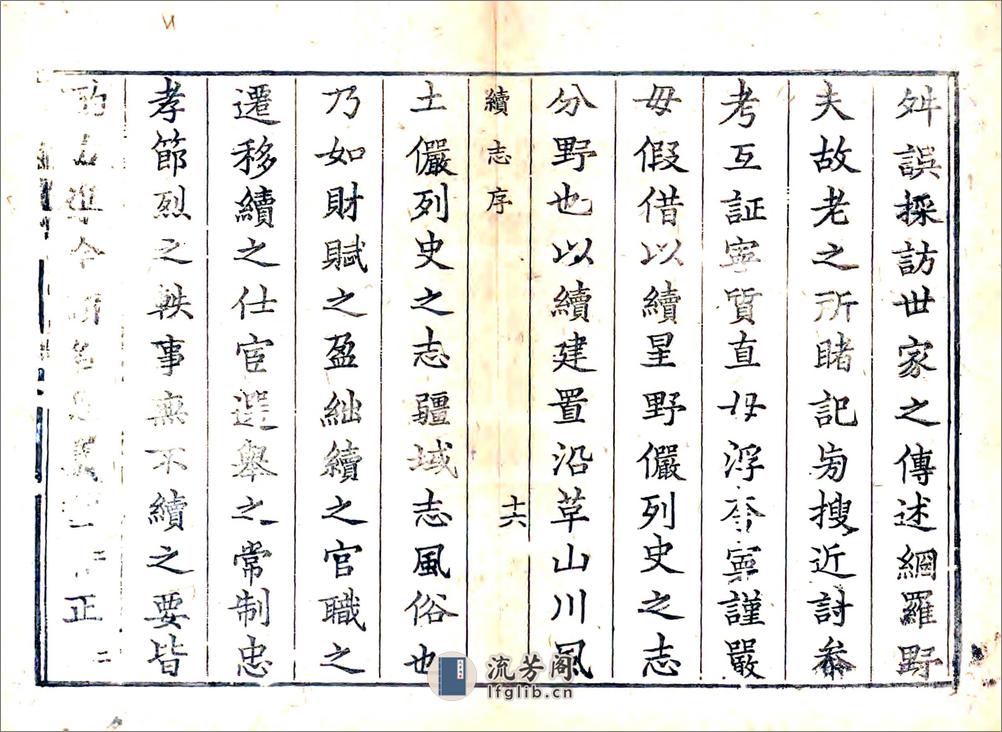 舛誤採訪世家之傳述網羅野
夫故老之所睹記旁搜近討叅
考互証寧質直毋浮夸寧謹嚴
毋假借以續星野儼列史之志
分野也以續建置沿革山川風
續志序
十六
土儼列史之志疆域志風俗也
乃如財賦之盈絀續之官職之
遷移續之仕宦選舉之常制忠
孝節烈之軼事無不續之要皆
正
流芳阁
lfglib.cn